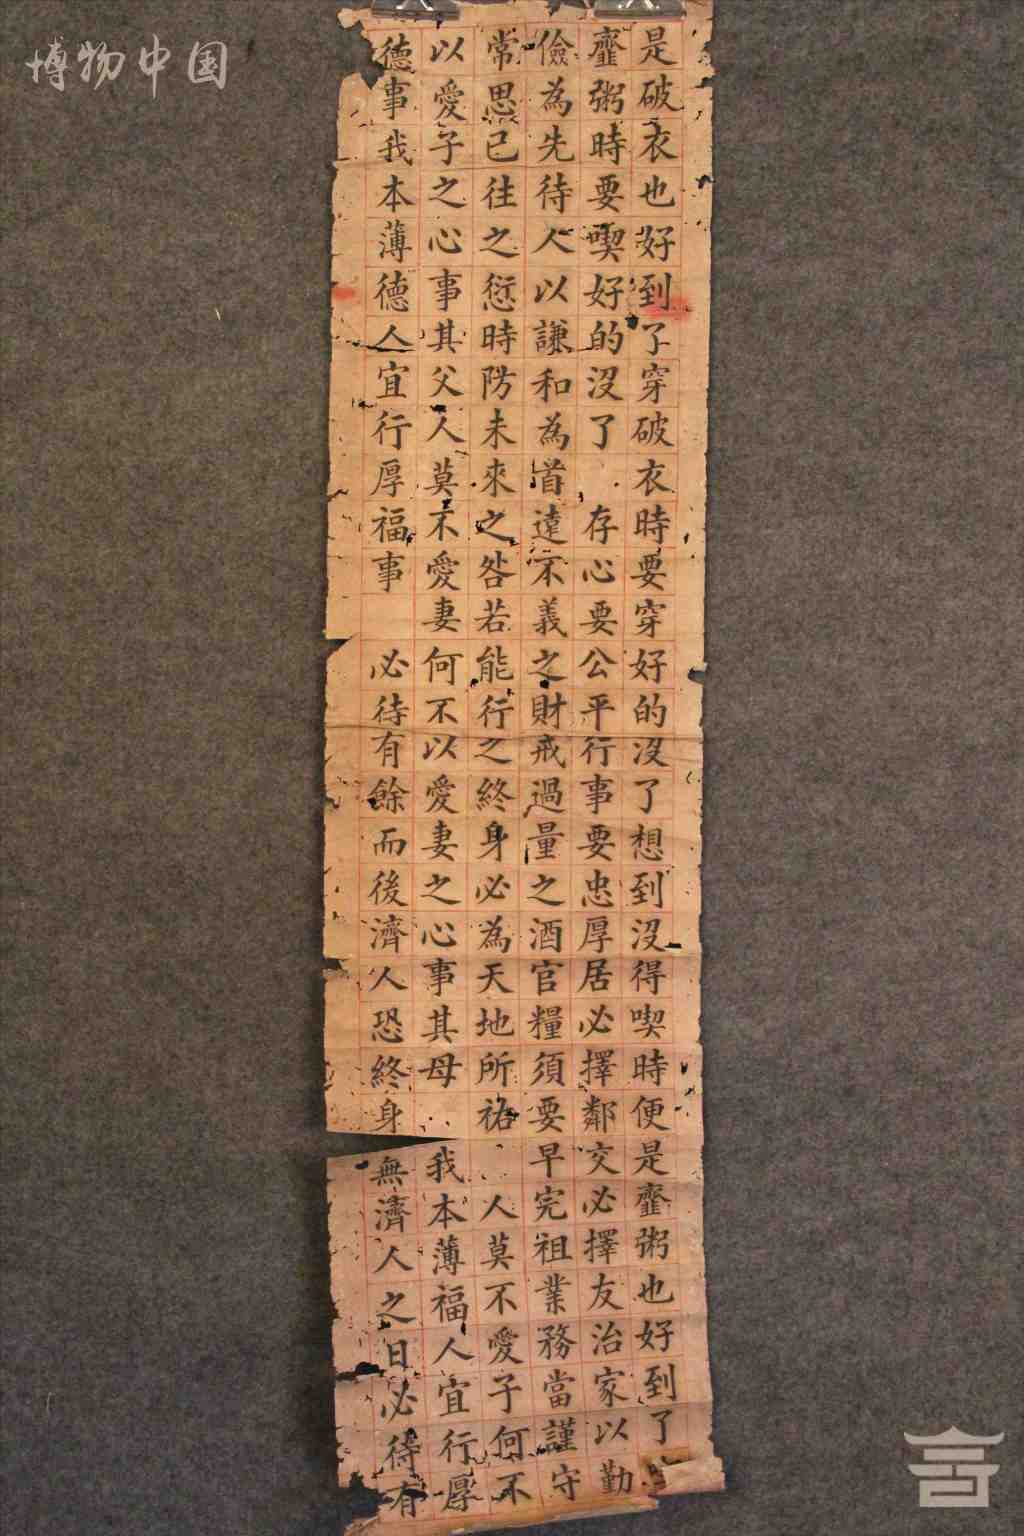 博物中国
是破衣也好到了穿破衣時要穿好的沒了想到沒得喫時便是虀粥也好到了
虀粥時要喫好的沒了 存心要公平行事要忠厚居必擇鄰交必擇友治家以勤
儉為先待人以謙和為首遠不義之財戒過量之酒官糧須要早完祖業務當謹守
常思已往之愆時防未來之咎若能行之終身必為天地所祐 人莫不愛子何不
以愛子之心事其父人莫不愛妻何不以愛妻之心事其母 我本薄福人宜行厚
德事我本薄德人宜行厚福事 必待有餘而後濟人恐終身無濟人之日必待有